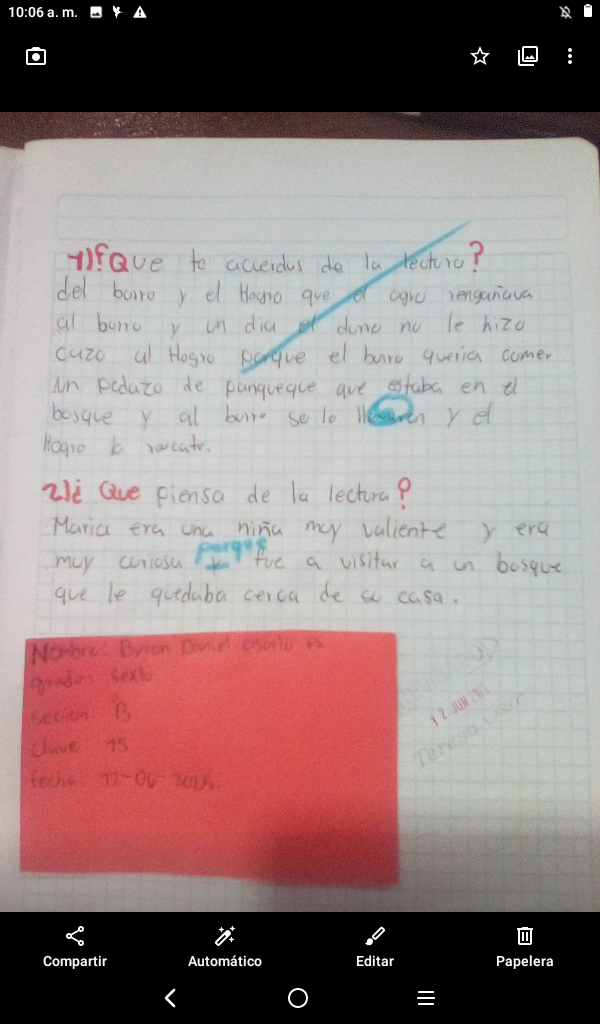 10:06 a. m.
1)¿Que te acuerdas de la lectura?
del burro y el Hogro que el ogro rengañava
al burro y un dia el duno no le hizo
cazo al Hogro porque el burro queria comer
un pedazo de panqueque que estaba en el
bosque y al burro se lo y el
Hogro lo rescato.
2)¿Que piensa de la lectura?
Maria era una niña muy valiente y era
porque
muy curiosa y fue a visitar a un bosque
que le quedaba cerca de su casa.
Nombre: Byron Daniel Osorio
grado: sexto
secion B
clave 15
fecha 12-06-2025
12 JUN
Teresa
Compartir
Automático
Editar
Papelera